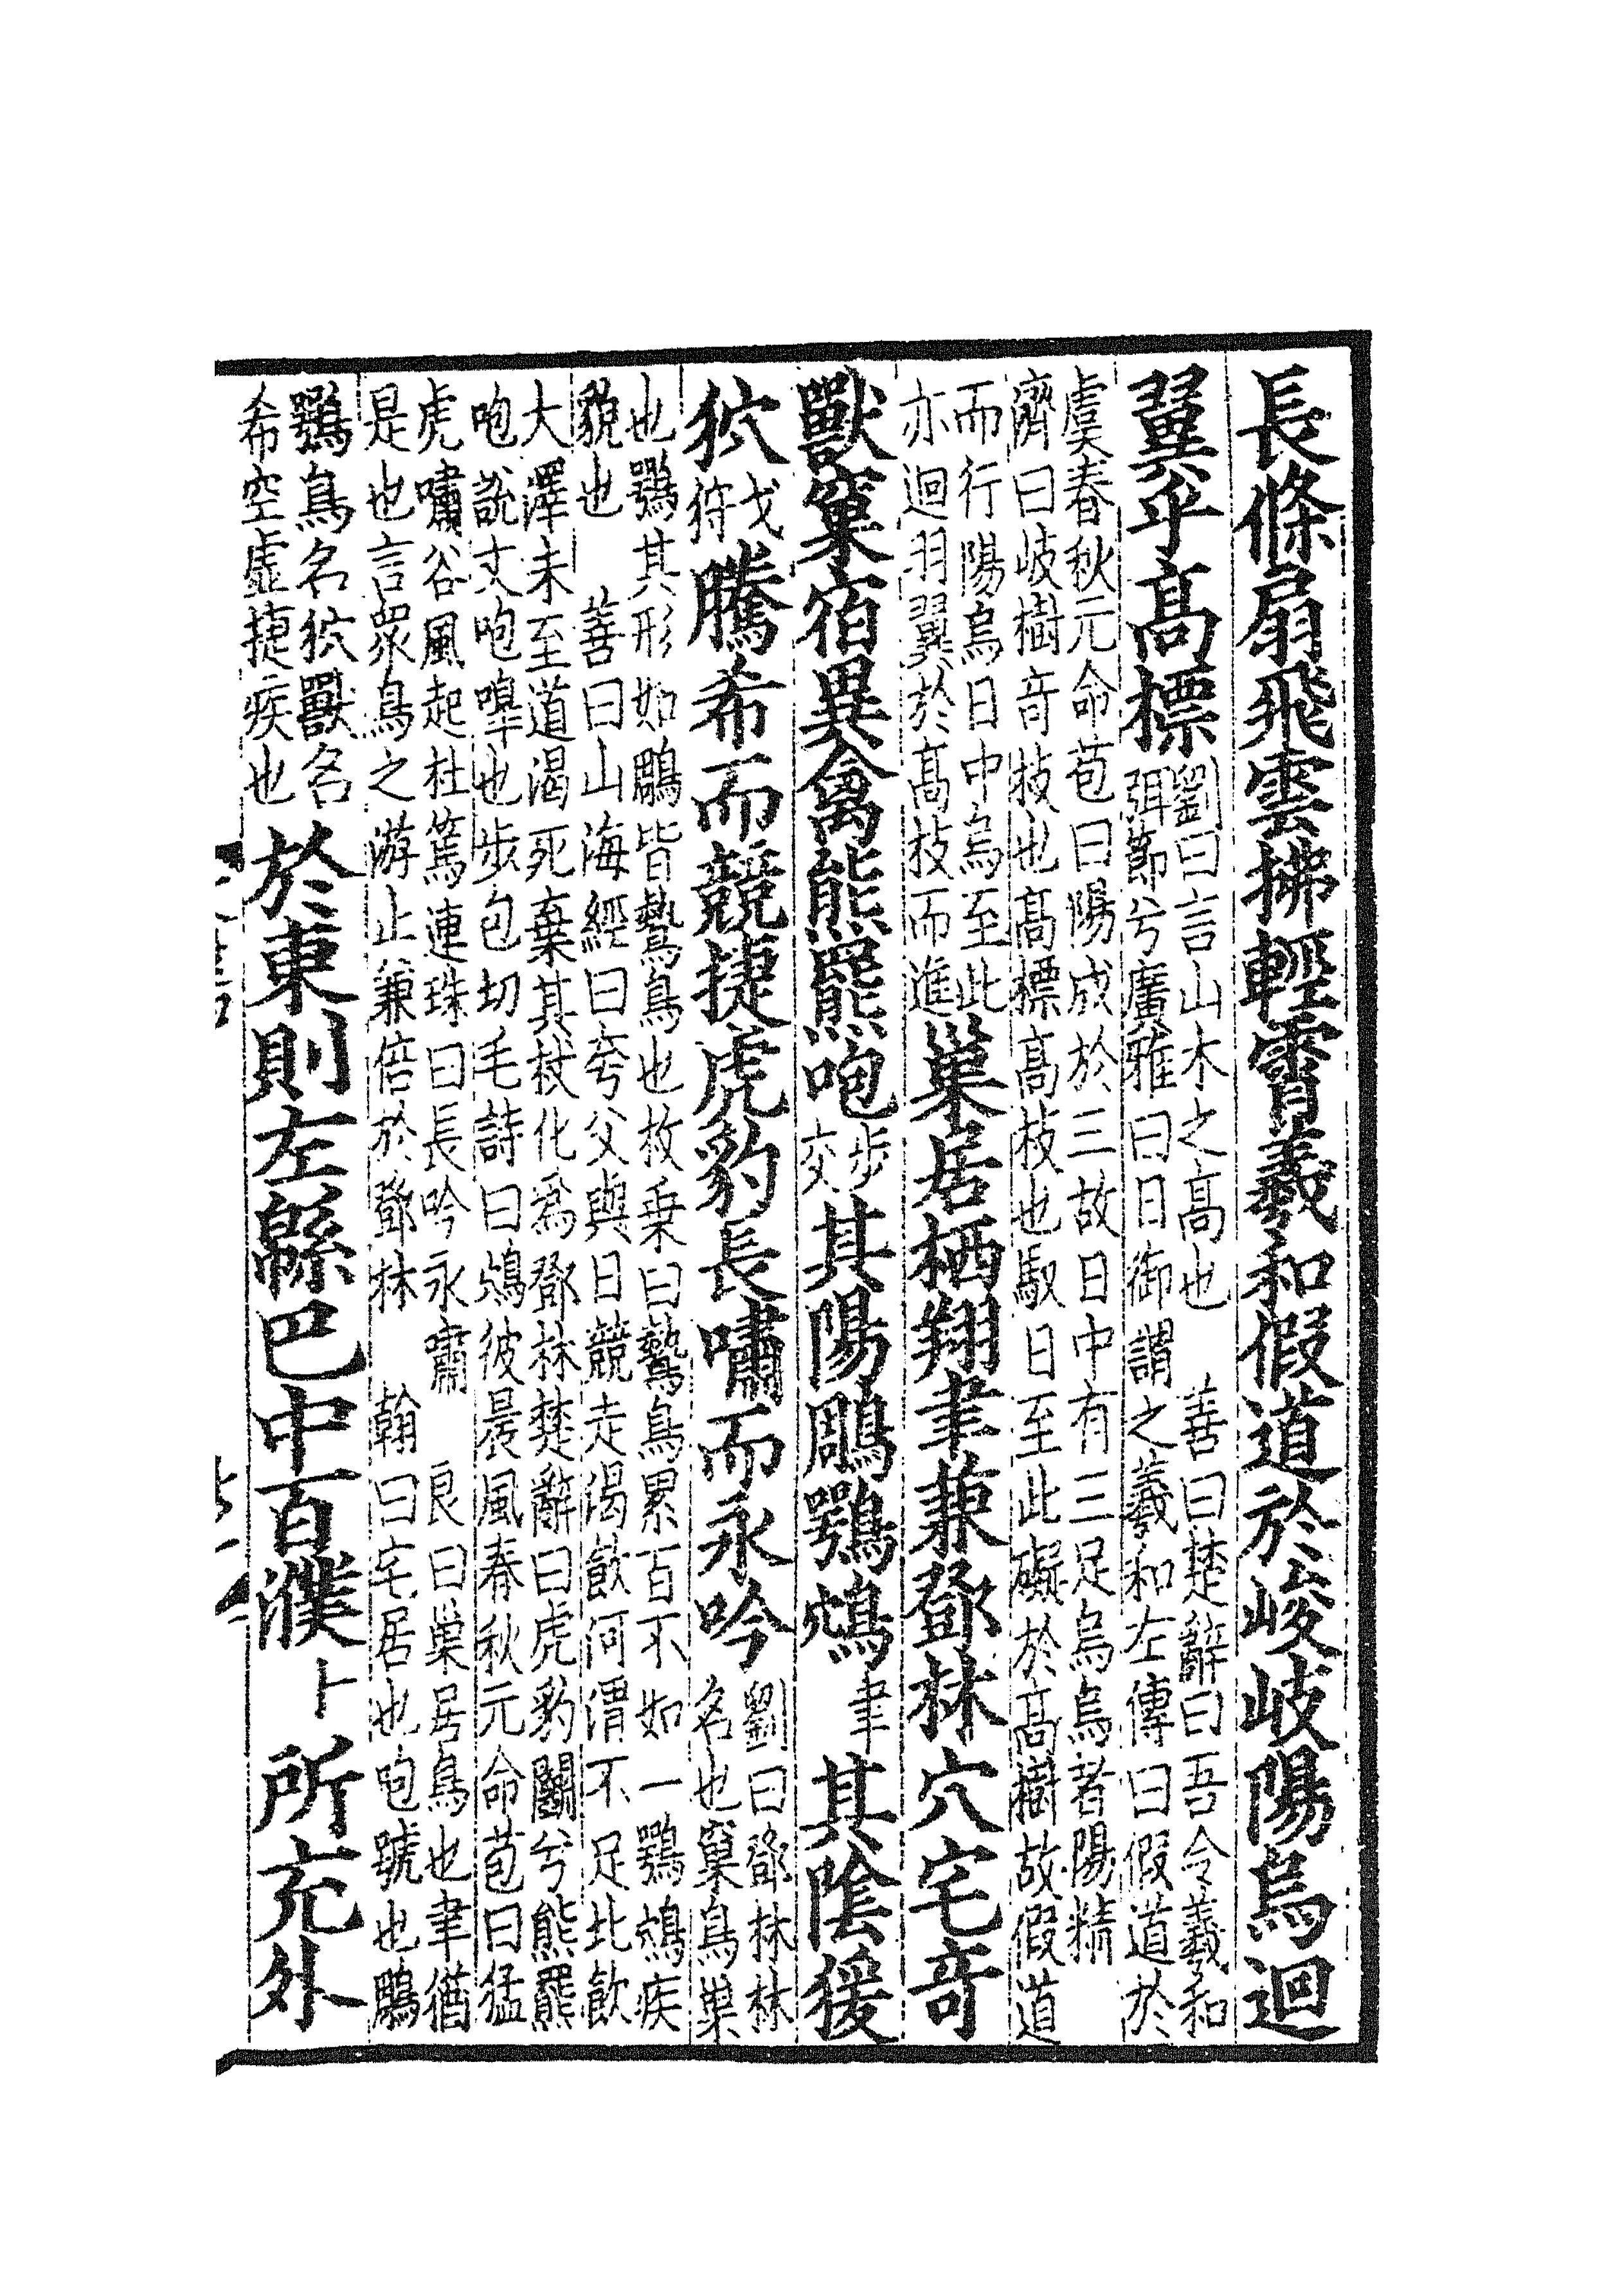 長條扇飛雲拂輕霄羲和假道於峻岐陽烏迴
翼乎高標
劉曰言山木之高也　善曰楚辭曰吾令羲和
弭節兮廣雅曰日御謂之羲和左傳曰假道於
虞春秋元命苞曰陽成於三故日中有三足烏烏者陽精
濟曰岐樹竒枝也高標高枝也馭日至此礙於高樹故假道
而行陽烏日中烏至此
亦迴羽翼於高枝而進
巢居栖翔聿兼鄧林穴宅竒
獸窠宿異禽熊羆咆
步
交
其陽鵰鶚鴥
聿
其陰猨
狖
弋
狩
騰希而競捷虎豹長嘯而永吟
劉曰鄧林林
名也窠鳥巢
也鶚其形如鵰皆鷙鳥也枚乗曰鷙鳥累百不如一鶚鴥疾
貌也　善曰山海經曰夸父與日競走渴飲河渭不足北飲
大澤未至道渴死棄其杖化爲鄧林楚辭曰虎豹鬭兮熊羆
咆說文咆嘷也步包切毛詩曰鴥彼晨風春秋元命苞曰猛
虎嘯谷風起杜篤連珠曰長吟永嘯　良曰巢居鳥也聿猶
是也言衆鳥之游止兼倍於鄧林　翰曰宅居也咆號也鵰
鶚鳥名狖獸名
希空虛捷疾也
於東則左緜巴中百濮
卜
所充外